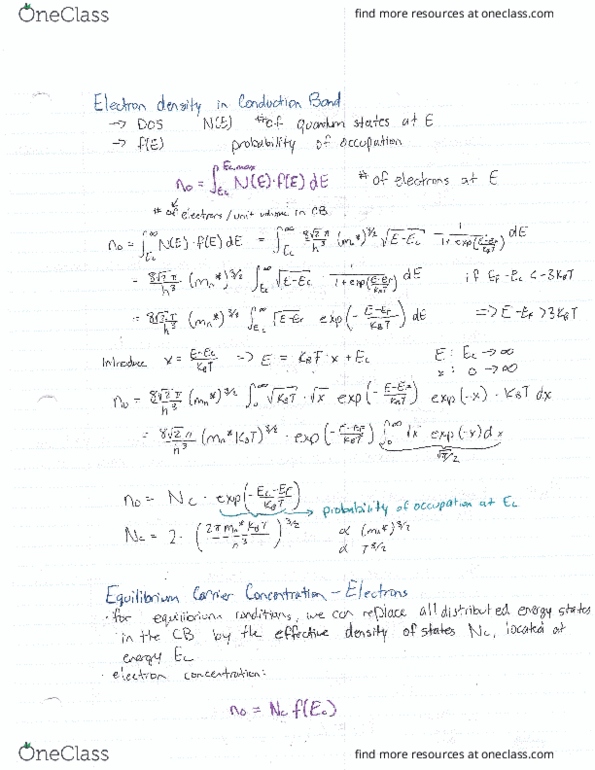 OneClass find more resources at oneclass.com
Electron density in Conduction Band
→ DOS N(E) # of quantum states at E
→ f(E) probability of occupation
n₀ = ∫_{Ec}^{Ec,max} N(E)·f(E) dE # of electrons at E
# of electrons/unit volume in CB
n₀ = ∫_{Ec}^{∞} N(E)·f(E) dE = ∫_{Ec}^{∞} 8√2 π/h³ (mn*)^{3/2} √(E-Ec) 1/(1+exp((E-EF)/KBT)) dE
= 8√2 π/h³ (mn*)^{3/2} ∫_{Ec}^{∞} √(E-Ec) 1/(1+exp((E-EF)/KBT)) dE if EF-Ec < -3KBT
= 8√2 π/h³ (mn*)^{3/2} ∫_{Ec}^{∞} √(E-Ec) exp(-(E-EF)/KBT) dE => E-EF > 3KBT
Introduce x = (E-Ec)/KBT => E = KBT·x + Ec E: Ec → ∞
x: 0 → ∞
n₀ = 8√2 π/h³ (mn*)^{3/2} ∫_0^∞ √(KBT)·√x exp(-(E-EF)/KBT) exp(-x)·KBT dx
= 8√2 π/h³ (mn* KBT)^{3/2} · exp(-(E-EF)/KBT) ∫_0^∞ √x exp(-x) dx
√π/2
n₀ = Nc · exp(-(Ec-EF)/KBT)
→ probability of occupation at Ec
Nc = 2·(2π mn* KBT/h³)^{3/2} ∝ (mn*)^{3/2}
∝ T^{3/2}
Equilibrium Carrier Concentration - Electrons
· for equilibrium conditions, we can replace all distributed energy states
in the CB by the effective density of states Nc, located at
energy Ec
· electron concentration:
n₀ = Nc f(Ec)
OneClass find more resources at oneclass.com